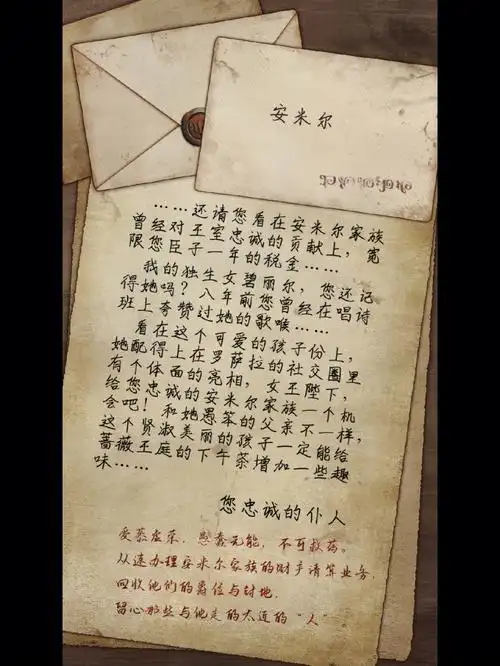 安米尔
……还请您看在安米尔家族
曾经对王室忠诚的贡献上，宽
限您臣子一年的税金……
我的独生女碧丽尔，您还记
得她吗？八年前您曾经在唱诗
班上夸赞过她的歌喉……
看在这个可爱的孩子份上，
她配得上在罗萨拉的社交圈里
有个体面的亮相，女王陛下，
给您忠诚的安米尔家族一个机
会吧！和她愚笨的父亲不一样，
这个贤淑美丽的孩子一定能给
蔷薇王庭的下午茶增加一些趣
味……
您忠诚的仆人
爱慕虚荣，愚蠢无能，不可救药。
从速办理安米尔家族的财产清算业务，
回收他们的爵位与封地，
留心那些与他走的太近的“人”